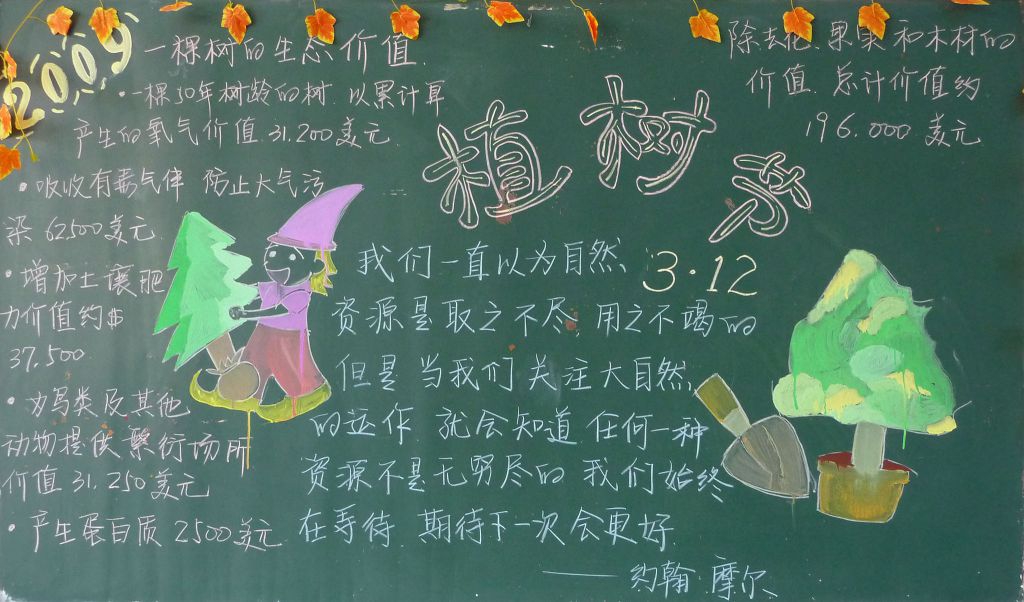 2009
一棵树的生态价值
·一棵50年树龄的树.以累计算
产生的氧气价值.31.200美元.
·吸收有毒气体 防止大气污
染 62500美元
·增加土壤肥
力价值约$
37.500.
·为鸟类及其他
动物提供繁衍场所
价值31.250美元
·产生蛋白质 2500美元
除去花、果实和木材的
价值.总计价值约
196.000美元.
植树节
3·12
我们一直以为自然、
资源是取之不尽,用之不竭的
但是当我们关注大自然
的运作.就会知道任何一种
资源不是无穷尽的 我们始终
在等待.期待下一次会更好.
——约翰.摩尔